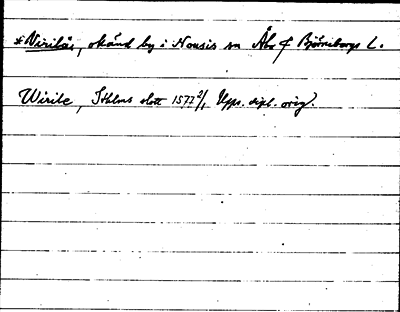 *Virilās, okänd by i Nousis sn Åbo o Björneborgs L.
Wirile, Sthlms slott 1577 2/1 Upps. dipl. orig.